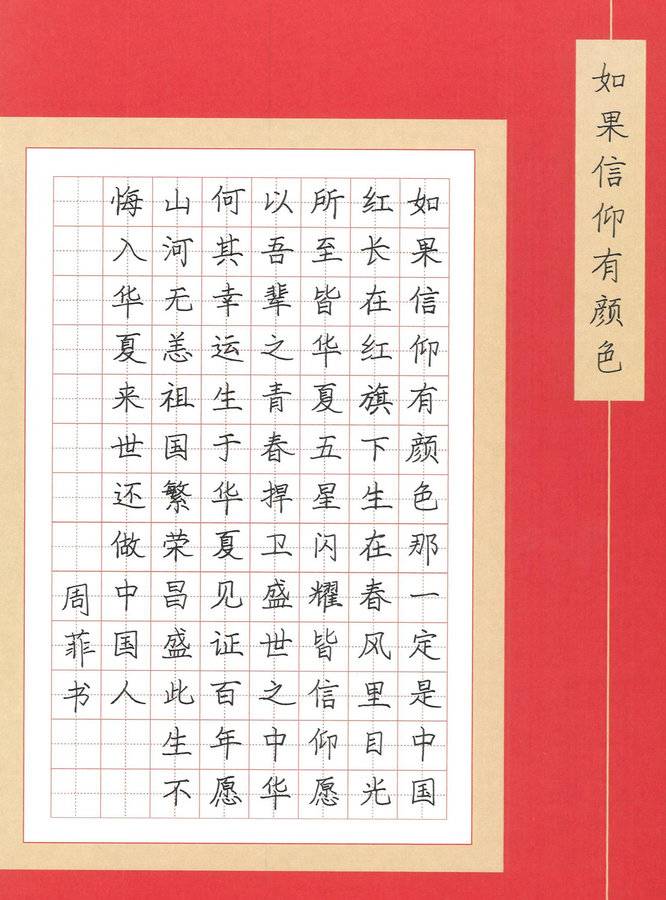 如果信仰有颜色
如果信仰有颜色那一定是中国
红长在红旗下生在春风里目光
所至皆华夏五星闪耀皆信仰愿
以吾辈之青春捍卫盛世之中华
何其幸运生于华夏见证百年愿
山河无恙祖国繁荣昌盛此生不
悔入华夏来世还做中国人
周菲书